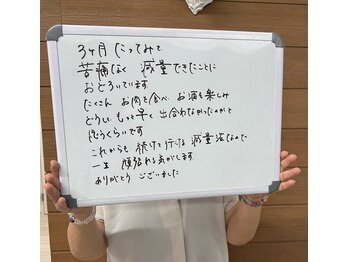 3ヶ月たってみて
苦痛なく 減量できたことに
おどろいています
たくさん お肉を食べ お酒を楽しみ
どうして もっと早く 出会わなかったのかと
思うくらいです
これからも 続けて行ける 減量法なので
一生 頑張れる気がします
ありがとう ございました